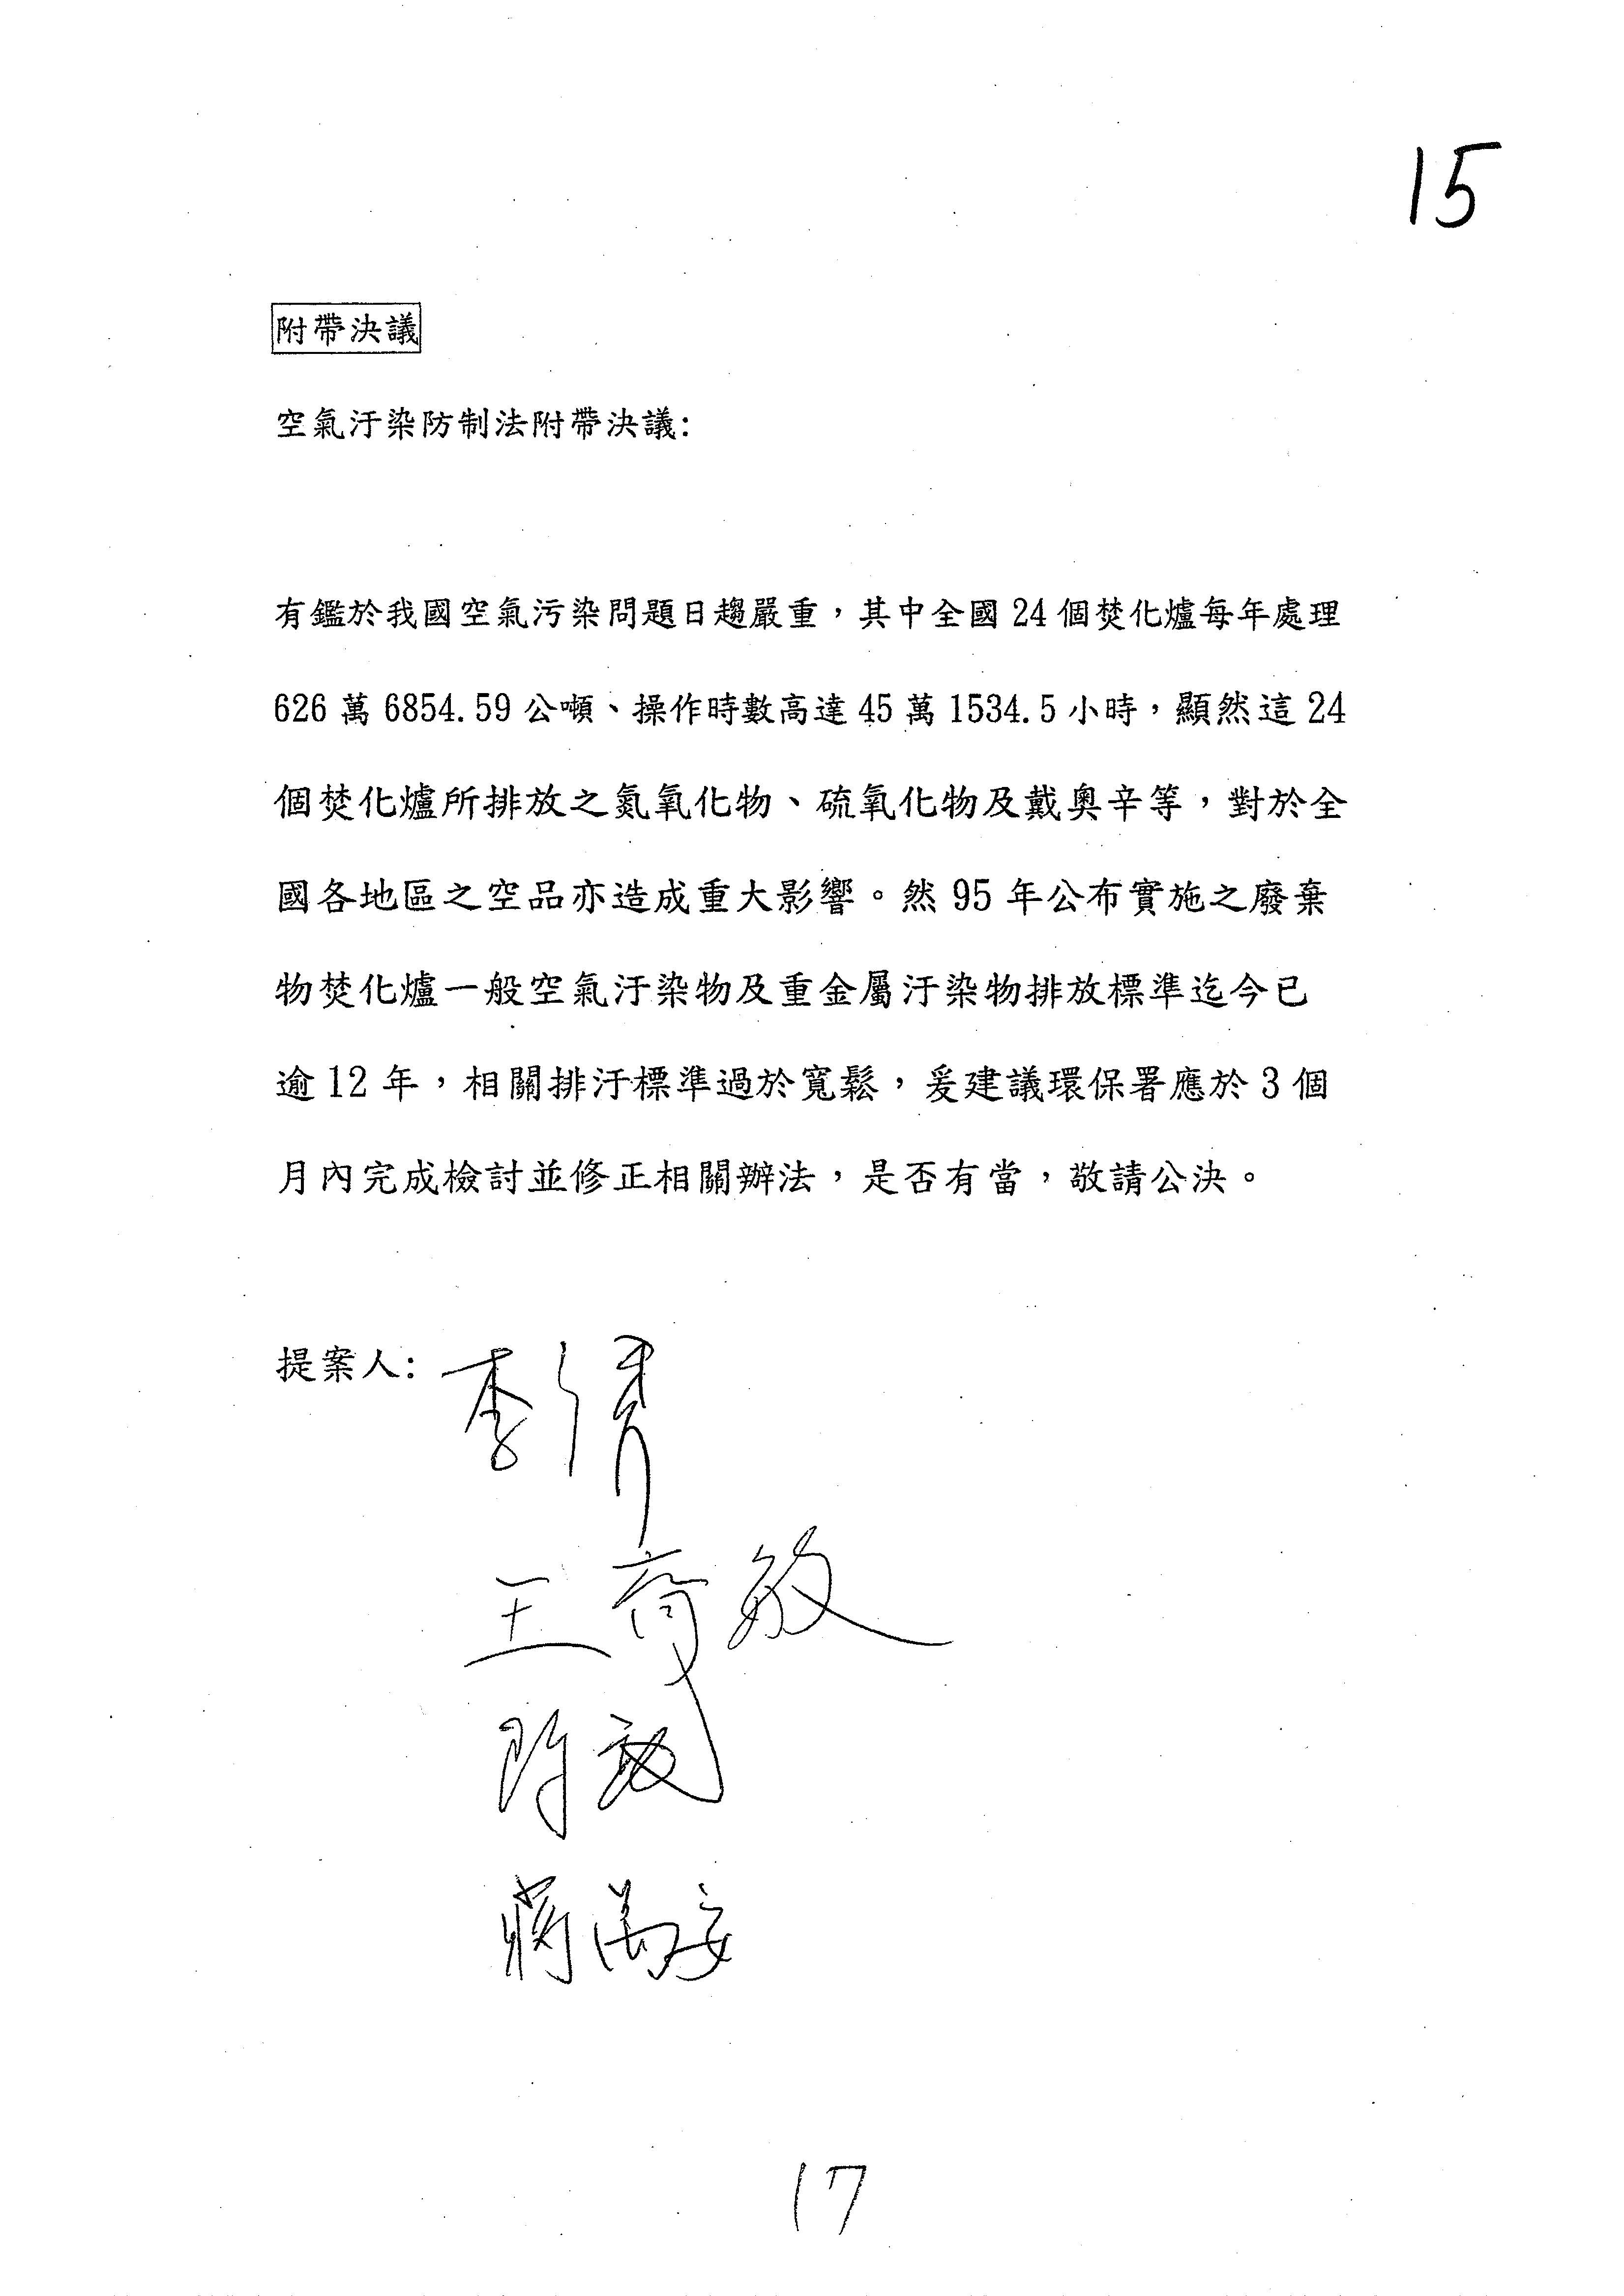 15
附帶決議
空氣汙染防制法附帶決議:
有鑑於我國空氣污染問題日趨嚴重，其中全國 24 個焚化爐每年處理
626 萬 6854.59 公噸、操作時數高達 45 萬 1534.5 小時，顯然這 24
個焚化爐所排放之氮氧化物、硫氧化物及戴奧辛等，對於全
國各地區之空品亦造成重大影響。然 95 年公布實施之廢棄
物焚化爐一般空氣汙染物及重金屬汙染物排放標準迄今已
逾 12 年，相關排汙標準過於寬鬆，爰建議環保署應於 3 個
月內完成檢討並修正相關辦法，是否有當，敬請公決。
提案人: 李
王育敏
蔣萬安
17